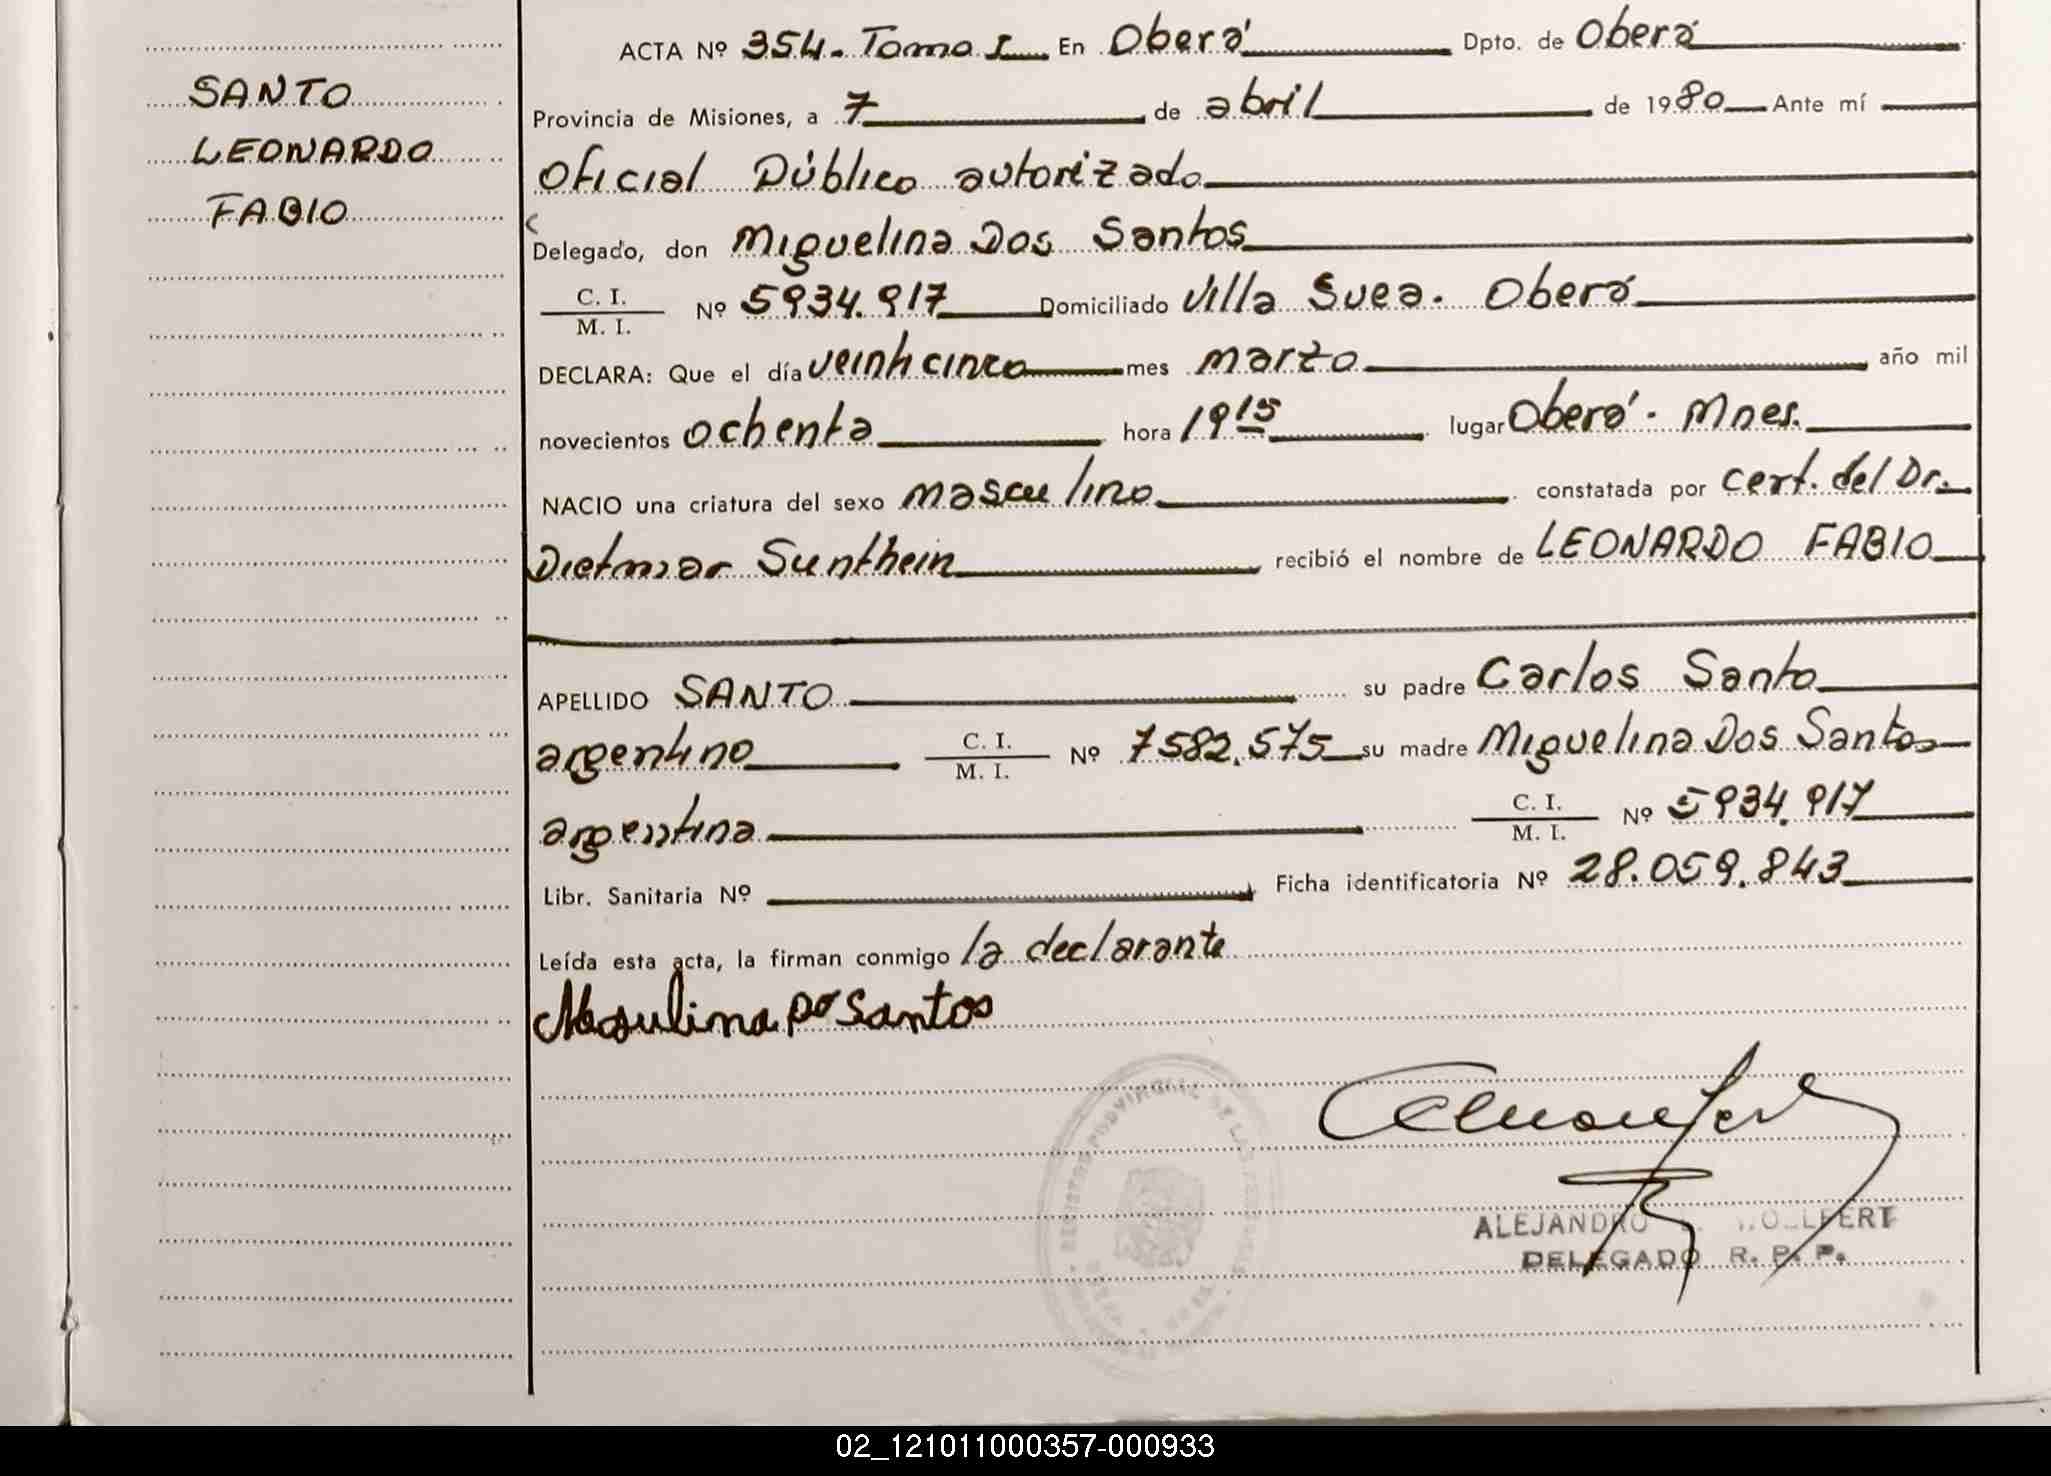 SANTO
LEONARDO
FABIO
ACTA Nº 354. Tomo I En Oberá Dpto. de Oberá
Provincia de Misiones, a 7 de abril de 1980 Ante mí
Oficial Público autorizado
Delegado, don Miguelina Dos Santos
C. I.
M. I. Nº 5934.917 Domiciliado Villa Svea. Oberá
DECLARA: Que el día veinticinco mes marzo año mil
novecientos ochenta hora 19 15 lugar Oberá. Mnes.
NACIO una criatura del sexo masculino constatada por cert. del Dr.
Dietmar Sunthein recibió el nombre de LEONARDO FABIO
APELLIDO SANTO su padre Carlos Santo
argentino C. I. M. I. Nº 7582.575 su madre Miguelina Dos Santos
argentina C. I. M. I. Nº 5934.917
Libr. Sanitaria Nº Ficha identificatoria Nº 28.059.843
Leída esta acta, la firman conmigo la declarante
Santos
ALEJANDRO
DELEGADO R. P. P.
02_121011000357-000933